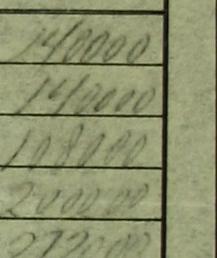 140000
140000
108000
200000
272000